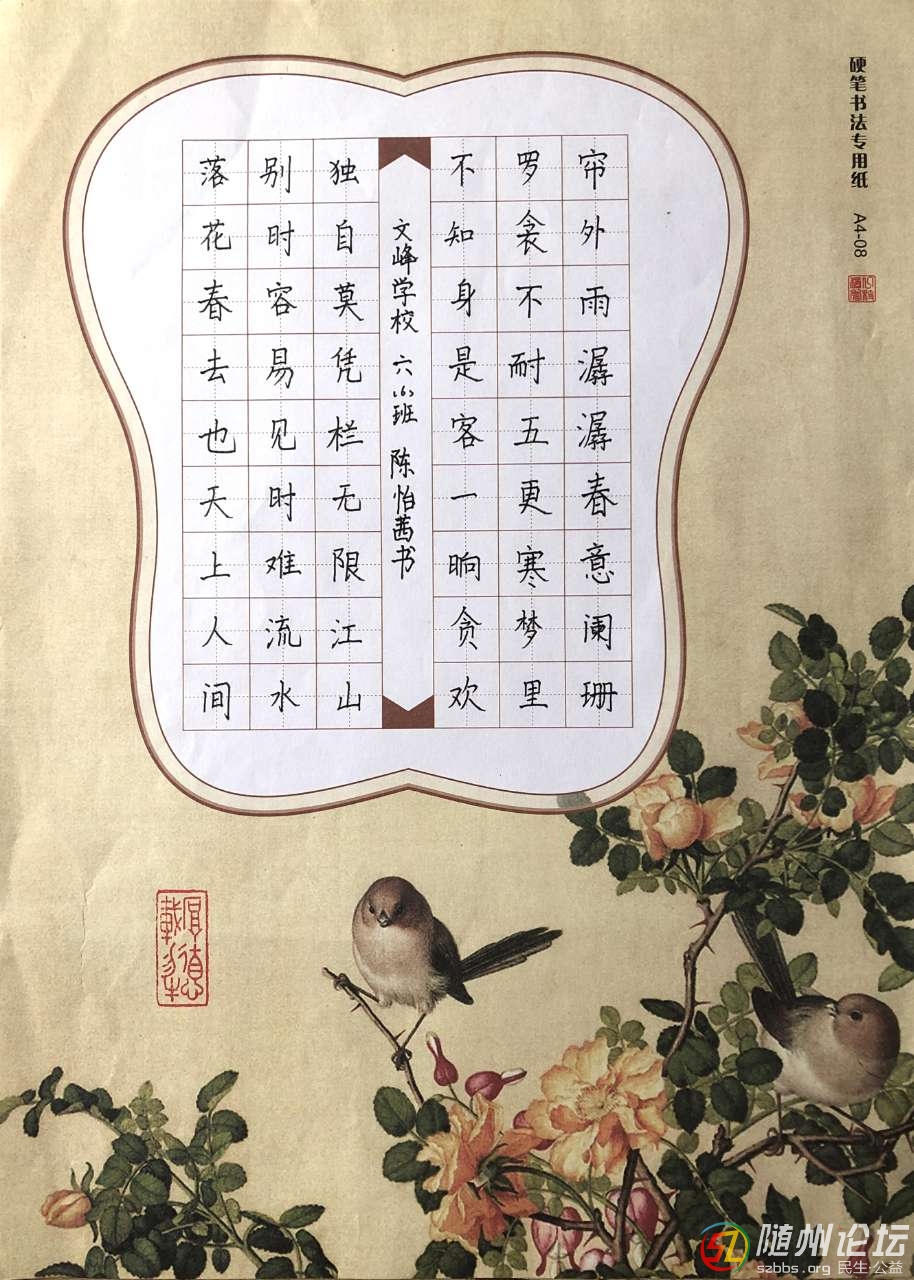 硬笔书法专用纸 A4-08
帘外雨潺潺春意阑珊
罗衾不耐五更寒梦里
不知身是客一晌贪欢
文峰学校 六班 陈怡茜书
独自莫凭栏无限江山
别时容易见时难流水
落花春去也天上人间
厚德载物
随州论坛
szbbs.org 民生·公益